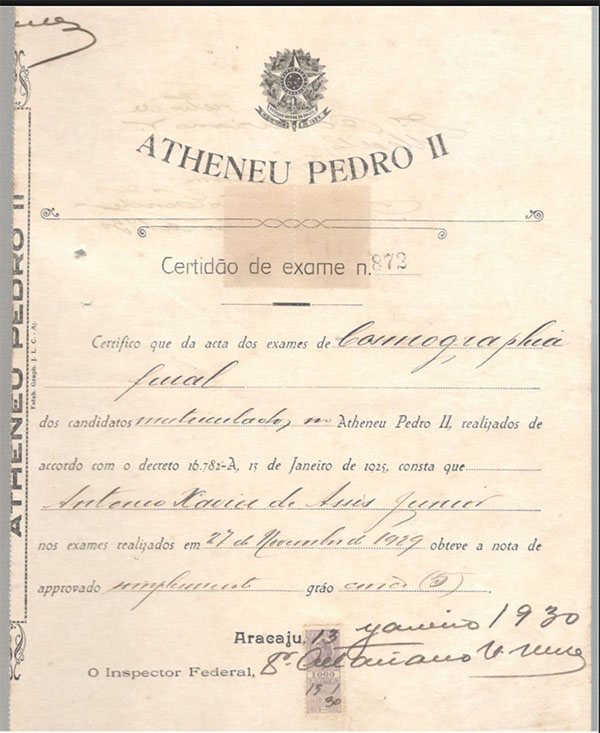 ATHENEU PEDRO II
Certidão de exame n. 872
Certifico que da acta dos exames de Cosmographia
final
dos candidatos matriculados no Atheneu Pedro II, realizados de
accordo com o decreto 16.782-A, 13 de Janeiro de 1925, consta que
Antonio Xavier de Assis Junior
nos exames realizados em 27 de Novembro de 1929 obteve a nota de
approvado simplesmente gráo cinco (5).
Aracaju, 13 janeiro 1930
O Inspector Federal,
1000
13 1
30
ATHENEU PEDRO II
Estab. Graph. J. L. C. - Aj.